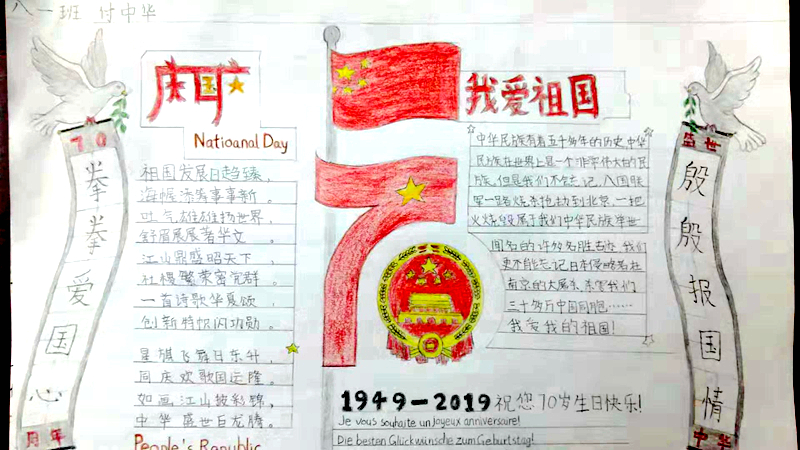 八一班 付中华
70
拳拳爱国心
周年
国庆
Natioanal Day
祖国发展日趋臻，
海幄添筹事事新。
吐气雄雄扬世界，
舒眉展展著华文。
江山鼎盛昭天下，
社稷繁荣密党群。
一首诗歌华展颂，
创新特帜闪功勋。
星旗飞舞日东升，
同庆欢歌国运隆。
如画江山披彩锦，
中华盛世巨龙腾。
People's Republic
70
我爱祖国
中华民族有着五千多年的历史，中华
民族在世界上是一个非常伟大的民
族，但是我们不能忘记，八国联
军一路烧杀抢劫到北京，一把
火烧毁属于我们中华民族举世
闻名的许多名胜古迹，我们
更不能忘记日本侵略者在
南京的大屠杀，杀害我们
三十多万中国同胞……
我爱我的祖国！
1949-2019祝您70岁生日快乐！
Je vous souhaite un joyeux anniversaire!
Die besten Glückwünsche zum Geburtstag!
盛世
殷殷报国情
中华